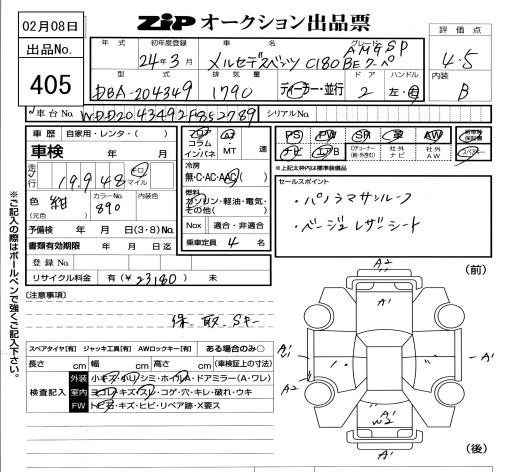 02月08日
ZIP オークション出品票
出品No.
405
年式 初年度登録 車名 グレード
24年3月 メルセデスベンツ C180 BE クーペ AMG SP
型式 排気量 ドア ハンドル
DBA-204349 1790 ディーラー・並行 2 左・右
評価点
4.5
内装
B
車台No. WDD2043492F852789 シリアルNo.
車歴 自家用・レンタ・( )
車検 年 月
走行 19,948 キロ マイル
色 紺 (元色) カラーNo. 890 内装色
予備検 年 月 日(3・8)No.
書類有効期限 年 月 日迄
登録No.
リサイクル料金 有(¥23180) 未
フロア コラム インパネ AT ・MT 速
冷房
無・C・AC・AAC
燃料
ガソリン・軽油・電気・その他( )
Nox 適合・非適合
乗車定員 4 名
PS PW SR 革 AW 新車時保証書
ナビ エアB TVチューナー(純・外含む) 社外ナビ 社外AW スペアキー
※上記太枠内は標準装備品
セールスポイント
・パノラマサンルーフ
・ベージュレザーシート
〔注意事項〕
保、取、Sキー
スペアタイヤ【有】 ジャッキ工具【有】 AWロックキー【有】 ある場合のみ○
長さ cm 幅 cm 高さ cm (車検証上の寸法)
検査記入
外装 小キズ・小リ・シミ・ホイルA・ドアミラー(A・ワレ)
室内 ヨゴレ・キズ・スレ・コゲ・穴・キレ・破れ・ウキ
FW トビ石・キズ・ヒビ・リペア跡・X要ス
※ご記入の際はボールペンで強くご記入下さい。
(前)
A2
A'
A'
A2
A'
A'
W2
A'
(後)